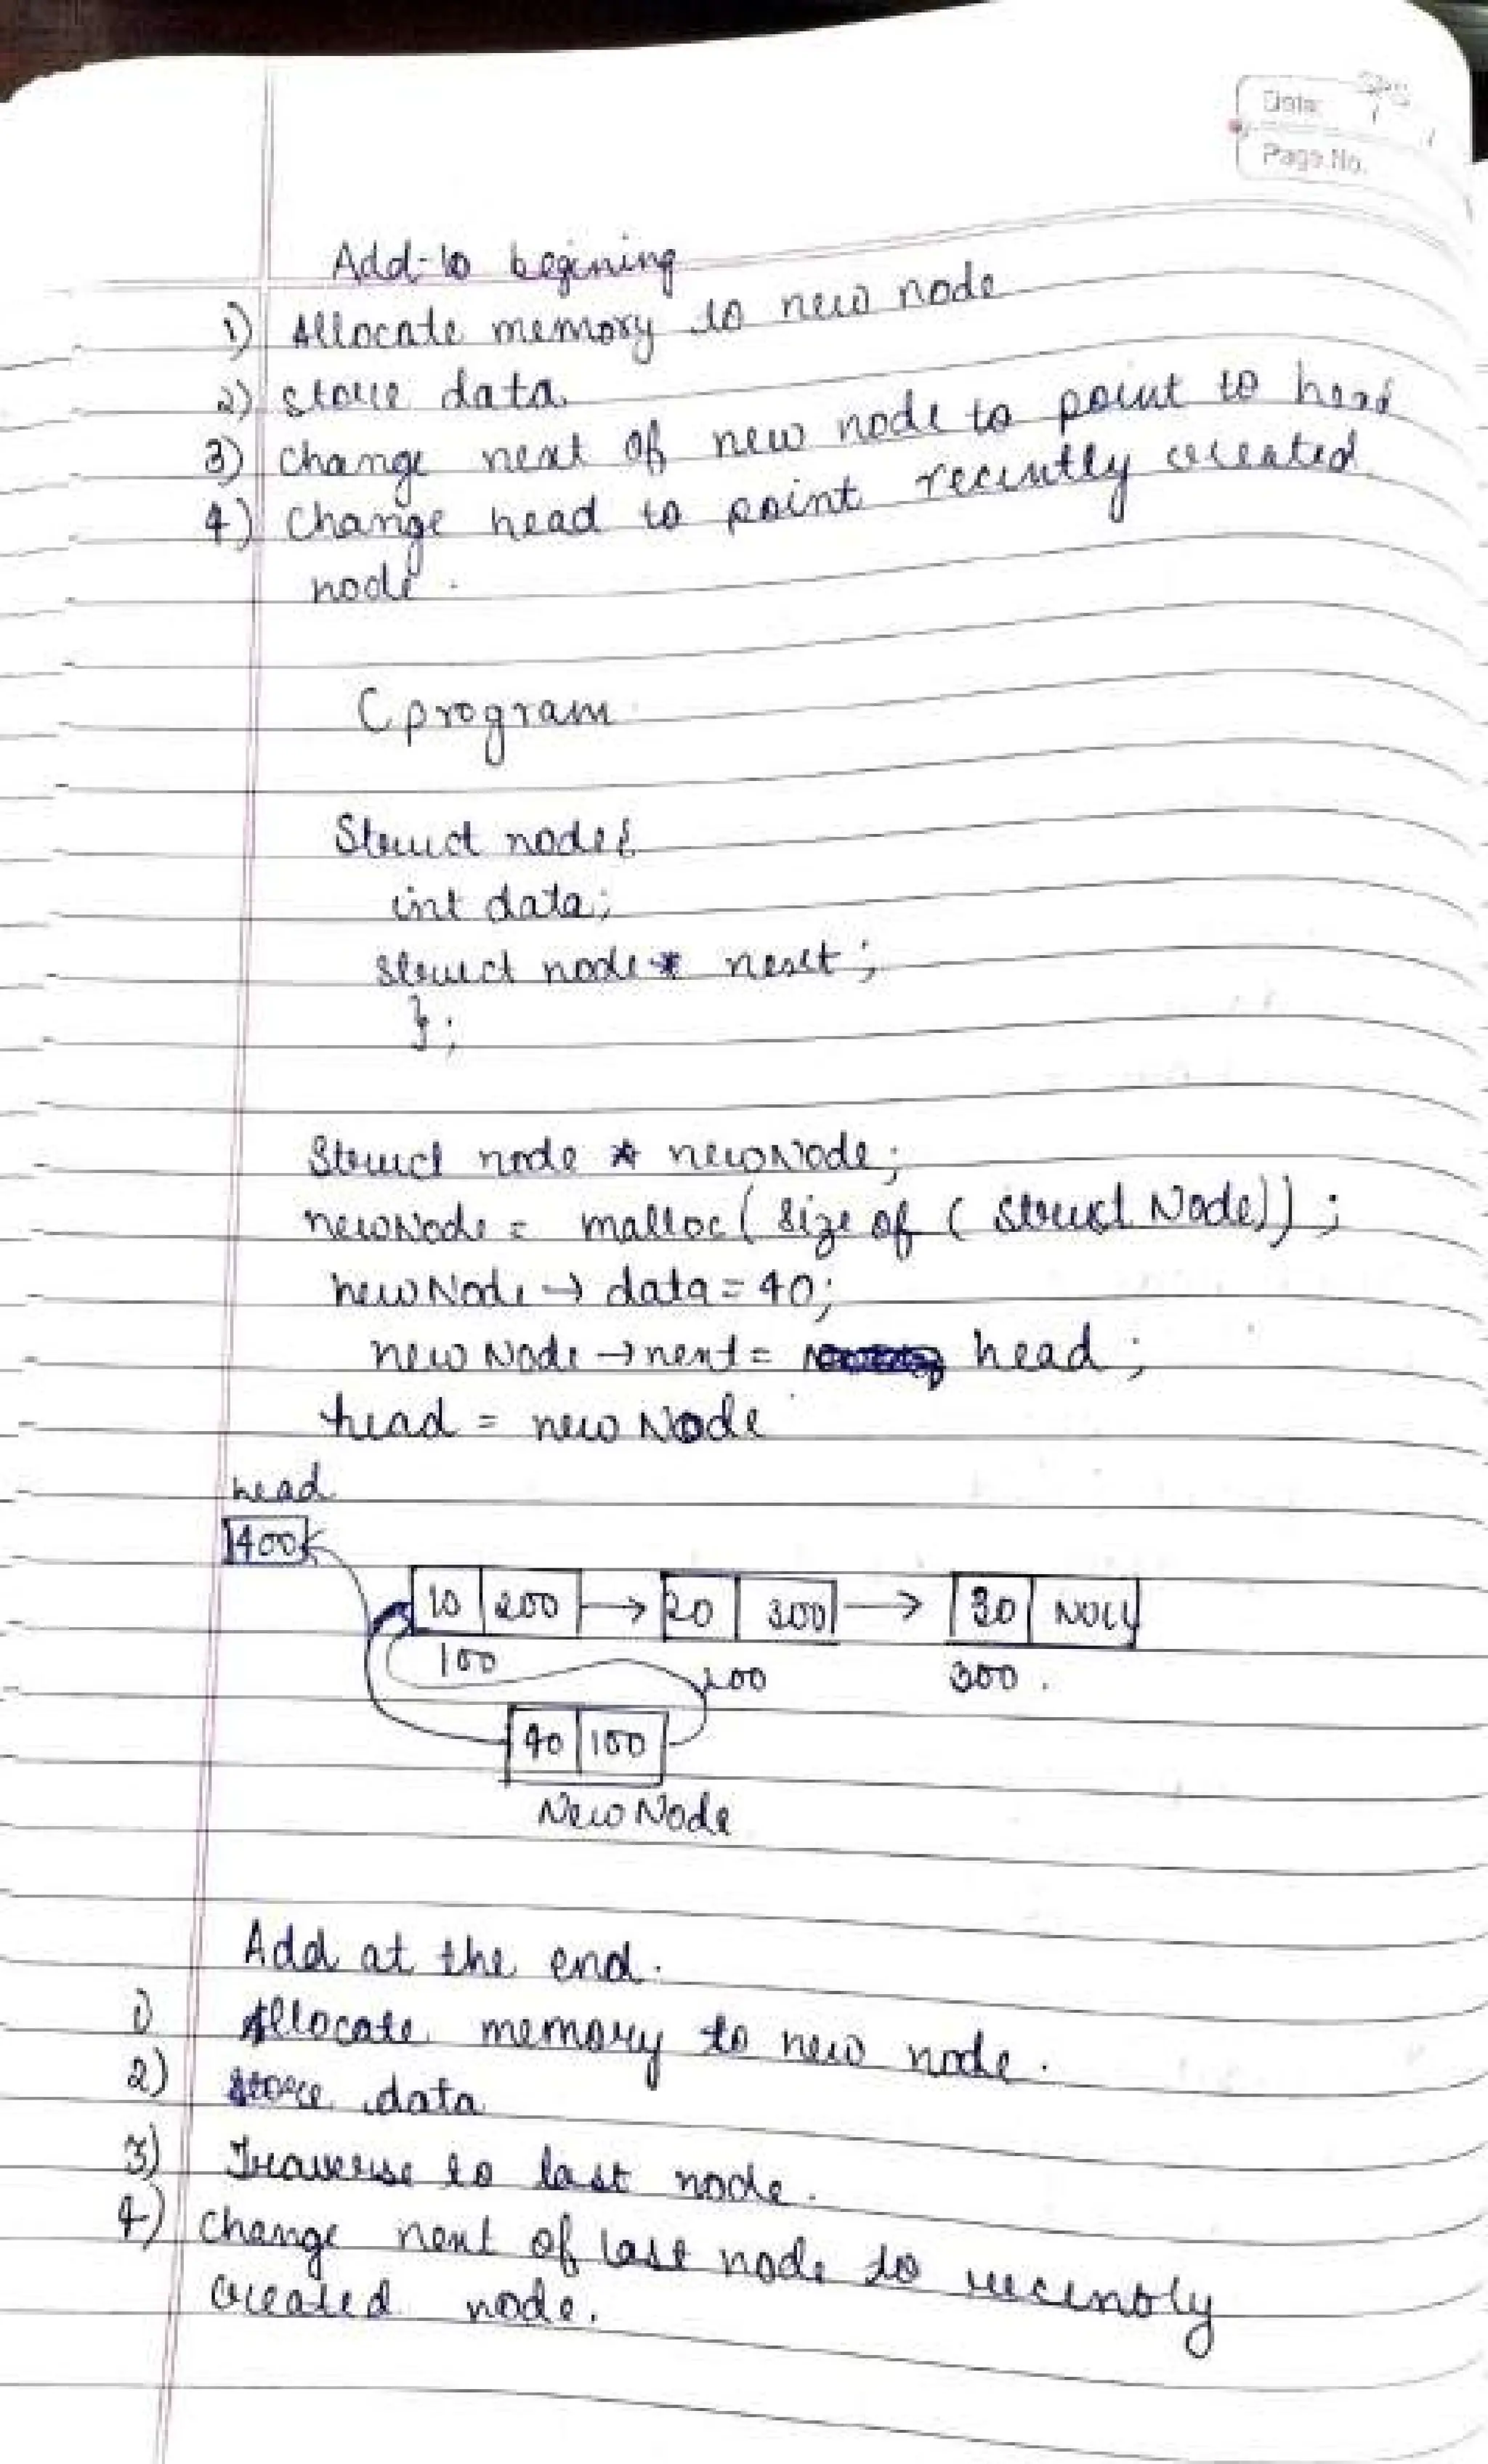 Date
Page No.
Add to begining
1) Allocate memory to new node
2) store data
3) change next of new node to point to head
4) Change head to point recently created
node.
C program
Struct node{
int data;
struct node* next;
};
Struct node * newNode;
newNode = malloc( size of ( struct Node));
newNode → data = 40;
newNode → next = head;
head = new Node
head
400
10 200 → 20 300 → 30 NULL
100 200 300.
40 100
New Node
Add at the end.
1) Allocate memory to new node.
2) store data
3) Traverse to last node.
4) change next of last node to recently
created node.